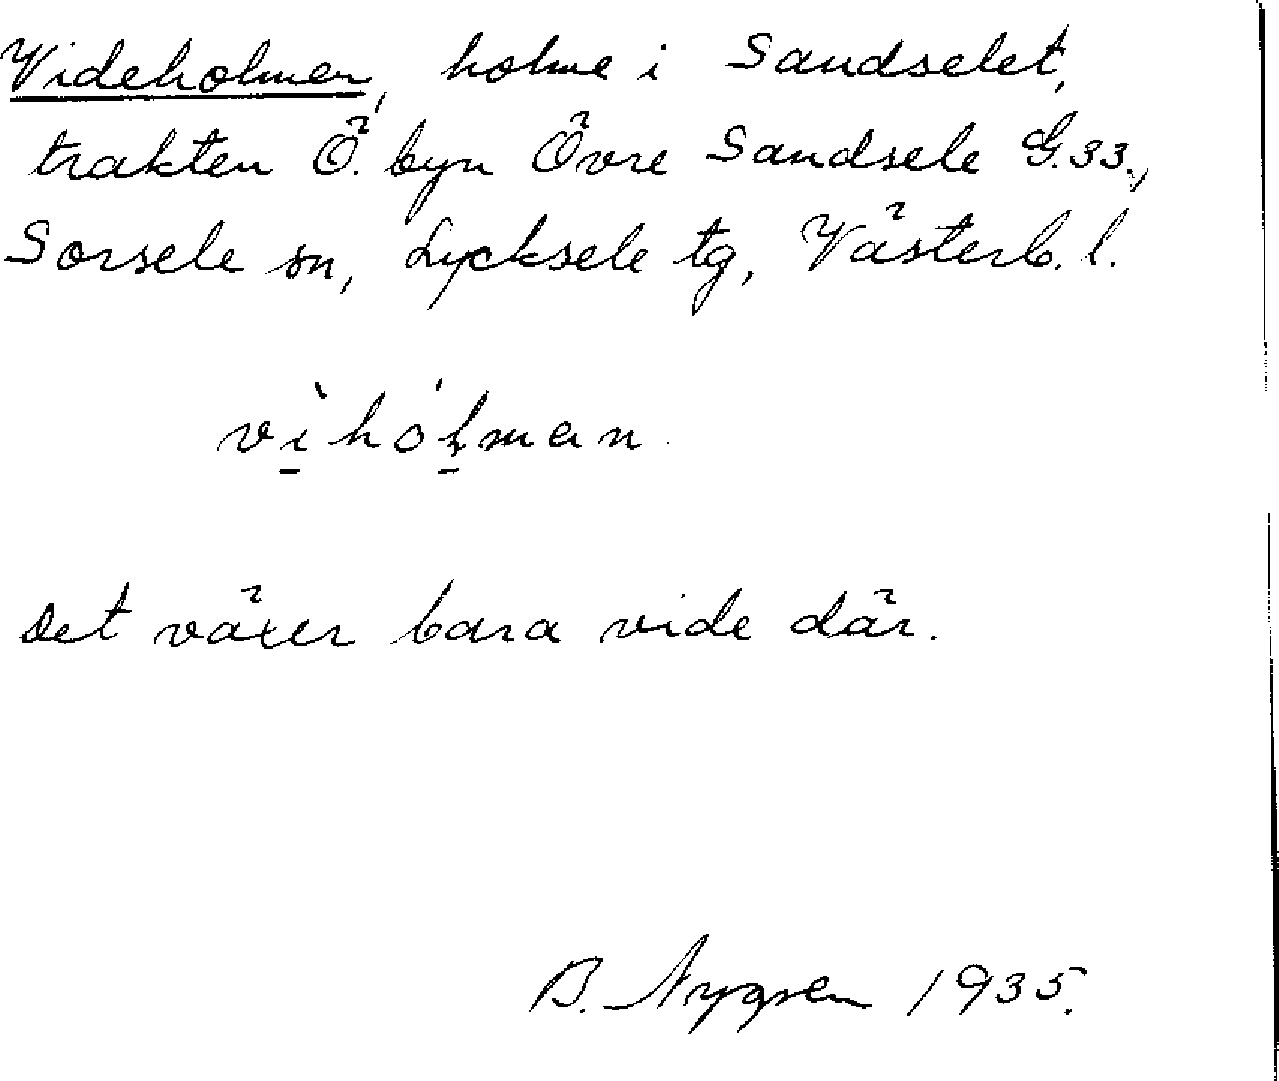 Videholmen, holme i Sandselet,
trakten Ö. byn Övre Sandsele G.33.,
Sorsele sn, Lycksele tg, Västerb. l.
vìhólman.
Det växer bara vide där.
B. Nygren 1935.